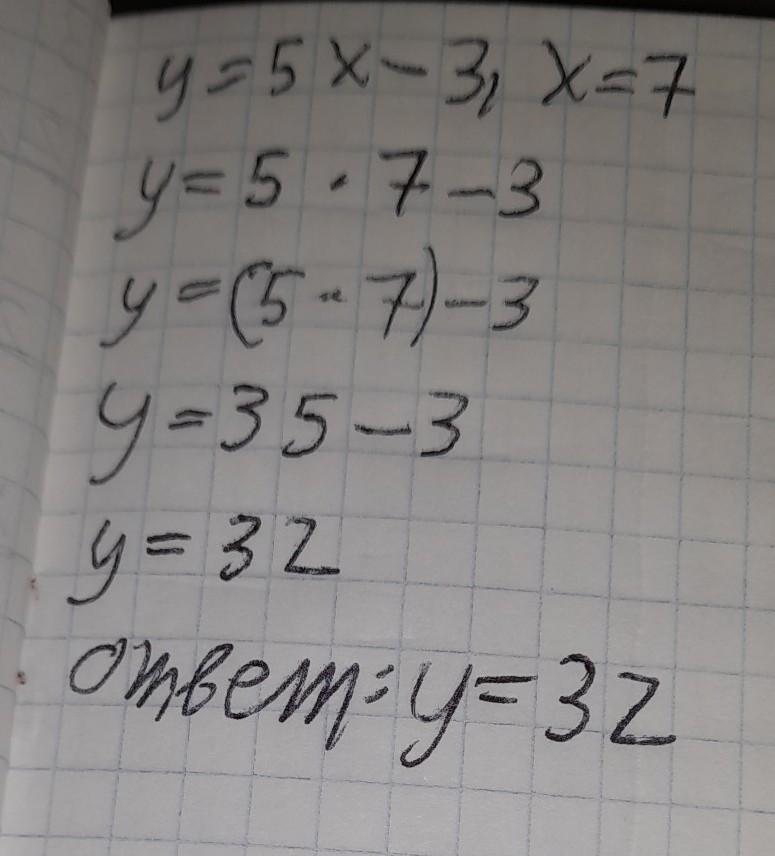 y = 5x - 3, x = 7
y = 5 · 7 - 3
y = (5 · 7) - 3
y = 35 - 3
y = 32
ответ: y = 32